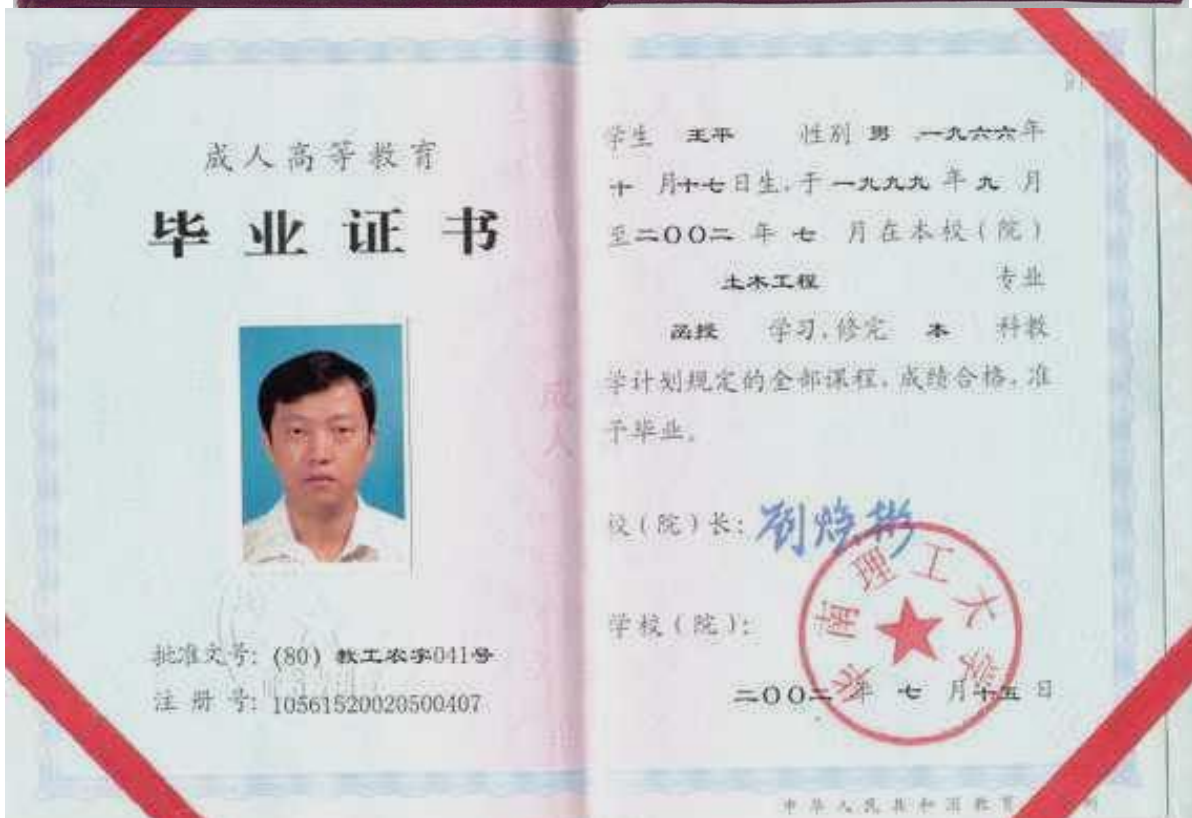 成人高等教育
毕业证书
成人
批准文号: (80) 教工农字041号
注册号: 10561520020500407
学生 王平 性别 男 一九六六年
十月十七日生,于一九九九年九月
至二〇〇二年七月在本校(院)
土木工程 专业
函授 学习,修完 本 科教
学计划规定的全部课程,成绩合格,准
予毕业。
校(院)长: 刘焕彬
学校(院):
华南理工大学
二〇〇二年七月十五日
中华人民共和国教育